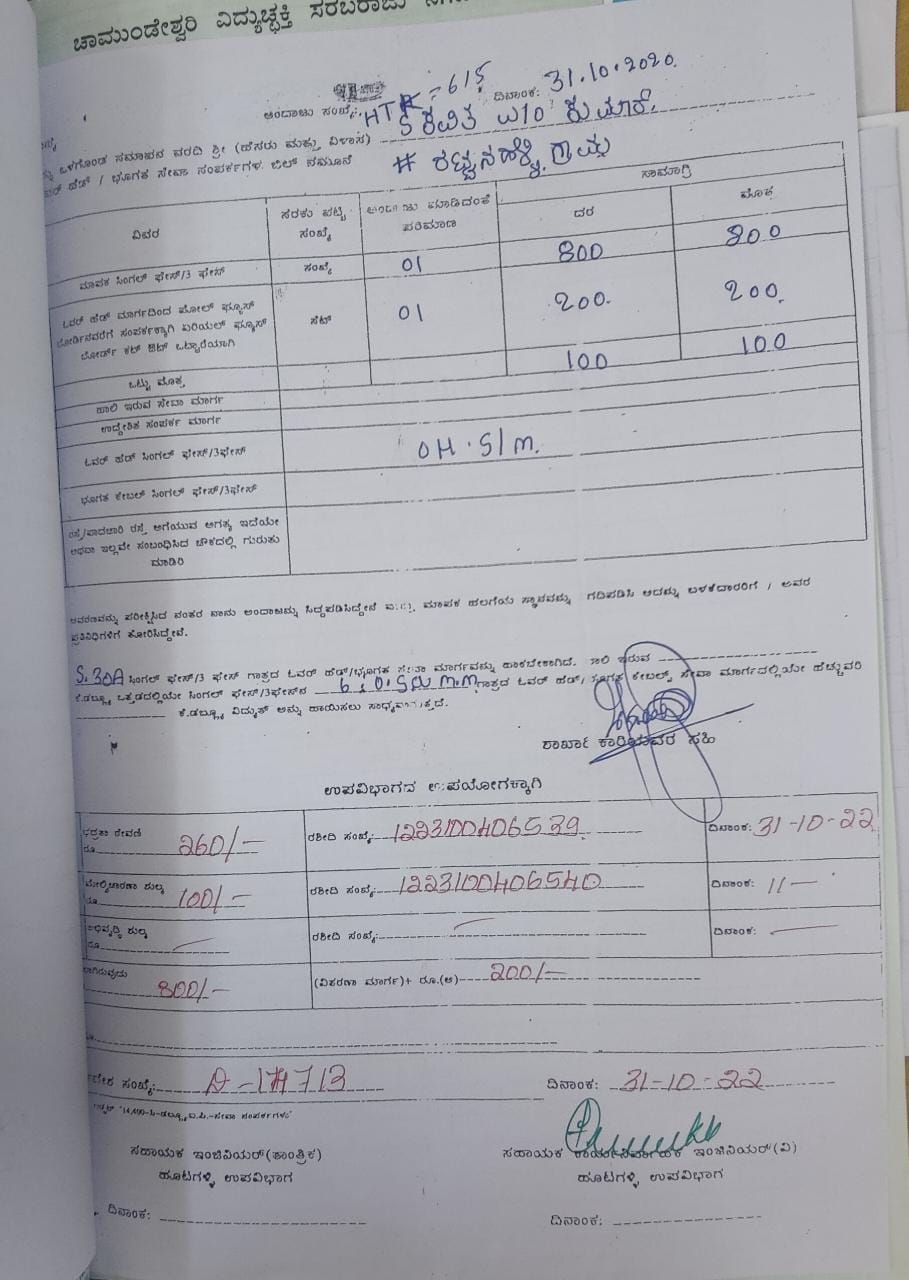 ಚಾಮುಂಡೇಶ್ವರಿ ವಿದ್ಯುಚ್ಛಕ್ತಿ ಸರಬರಾಜು
ಅಂದಾಜು ಸಂಖ್ಯೆ: HTR = 615 ದಿನಾಂಕ: 31.10.2020.
ಒಳಗೊಂಡ ಸಮಾಪನ ವರದಿ ಶ್ರೀ (ಹೆಸರು ಮತ್ತು ವಿಳಾಸ) ಕವಿತ W/O ಕುಮಾರ್.
ಹೆಡ್ / ಭೂಗತ ಸೇವಾ ಸಂಪರ್ಕಗಳ. ಬಿಲ್ ನಮೂನೆ # ಗ್ರಾಮ
ವಿವರ ಸರಕು ಪಟ್ಟಿ ಸಂಖ್ಯೆ ಅಂದಾಜು ಮಾಡಿದಂತೆ ಪರಿಮಾಣ ಸಾಮಾಗ್ರಿ
ದರ ಮೊತ್ತ
ಮಾಪಕ ಸಿಂಗಲ್ ಫೇಸ್/3 ಫೇಸ್ ಸಂಖ್ಯೆ 01 800 800
ಓವರ್ ಹೆಡ್ ಮಾರ್ಗದಿಂದ ಪೋಲ್ ಫ್ಯೂಸ್
ಬೋರ್ಡಿನವರೆಗೆ ಸಂಪರ್ಕಕ್ಕಾಗಿ ಏರಿಯಲ್ ಫ್ಯೂಸ್ ಸೆಟ್ 01 200. 200.
ಬೋರ್ಡ್ ಕಟ್ ಔಟ್ ಒಟ್ಟಾರೆಯಾಗಿ
ಒಟ್ಟು ಮೊತ್ತ 100 100
ಹಾಲಿ ಇರುವ ಸೇವಾ ಮಾರ್ಗ
ಉದ್ದೇಶಿತ ಸಂಪರ್ಕ ಮಾರ್ಗ
ಓವರ್ ಹೆಡ್ ಸಿಂಗಲ್ ಫೇಸ್/3ಫೇಸ್ OH.S/M.
ಭೂಗತ ಕೇಬಲ್ ಸಿಂಗಲ್ ಫೇಸ್/3ಫೇಸ್
ರಸ್ತೆ/ಪಾದಚಾರಿ ರಸ್ತೆ ಅಗೆಯುವ ಅಗತ್ಯ ಇದೆಯೇ
ಅಥವಾ ಇಲ್ಲವೇ ಸಂಬಂಧಿಸಿದ ಚೌಕದಲ್ಲಿ ಗುರುತು
ಮಾಡಿರಿ
ಆವರಣವನ್ನು ಪರೀಕ್ಷಿಸಿದ ನಂತರ ನಾನು ಅಂದಾಜನ್ನು ಸಿದ್ಧಪಡಿಸಿದ್ದೇನೆ ಮಾಪಕ ಹಲಗೆಯ ಸ್ಥಾನವನ್ನು ಗದಿಪಡಿಸಿ ಅದನ್ನು ಬಳಕೆದಾರರಿಗೆ / ಅವರ
ಪ್ರತಿನಿಧಿಗಳಿಗೆ ತೋರಿಸಿದ್ದೇನೆ.
S.30A ಸಿಂಗಲ್ ಫೇಸ್/3 ಫೇಸ್ ಗಾತ್ರದ ಓವರ್ ಹೆಡ್/ಭೂಗತ ಸೇವಾ ಮಾರ್ಗವನ್ನು ಹಾಕಬೇಕಾಗಿದೆ. ಹಾಲಿ ಇರುವ
ಕೆ.ಡಬ್ಲ್ಯೂ ಒತ್ತಡದಲ್ಲಿಯೇ ಸಿಂಗಲ್ ಫೇಸ್/3ಫೇಸ್‌ನ 6.0.SQ m.m ಗಾತ್ರದ ಓವರ್ ಹೆಡ್/ ಭೂಗತ ಕೇಬಲ್ಸ್ ಸೇವಾ ಮಾರ್ಗದಲ್ಲಿಯೇ ಹೆಚ್ಚುವರಿ
ಕೆ.ಡಬ್ಲ್ಯೂ ವಿದ್ಯುತ್ ಅನ್ನು ಹಾಯಿಸಲು ಸಾಧ್ಯವಾಗುತ್ತದೆ.
ಶಾಖಾ ಕಾರಿಯವರ ಸಹಿ
ಉಪವಿಭಾಗದ ಉಪಯೋಗಕ್ಕಾಗಿ
ಭದ್ರತಾ ಠೇವಣಿ ರೂ. 260/- ರಶೀದಿ ಸಂಖ್ಯೆ: 1223100406539 ದಿನಾಂಕ: 31-10-22
ಮೇಲ್ವಿಚಾರಣಾ ಶುಲ್ಕ ರೂ. 100/- ರಶೀದಿ ಸಂಖ್ಯೆ: 1223100406540 ದಿನಾಂಕ: 11-
ಅಭಿವೃದ್ಧಿ ಶುಲ್ಕ ರೂ. ರಶೀದಿ ಸಂಖ್ಯೆ: ದಿನಾಂಕ:
800/- (ವಿತರಣಾ ಮಾರ್ಗ)+ ರೂ.(ಆ) 200/-
ಸಂಖ್ಯೆ: ದಿನಾಂಕ: 31-10-22
ಸಹಾಯಕ ಇಂಜಿನಿಯರ್(ತಾಂತ್ರಿಕ) ಸಹಾಯಕ ಕಾರ್ಯನಿರ್ವಾಹಕ ಇಂಜಿನಿಯರ್(ವಿ)
ಹೂಟಗಳ್ಳಿ ಉಪವಿಭಾಗ ಹೂಟಗಳ್ಳಿ ಉಪವಿಭಾಗ
ದಿನಾಂಕ: ದಿನಾಂಕ: